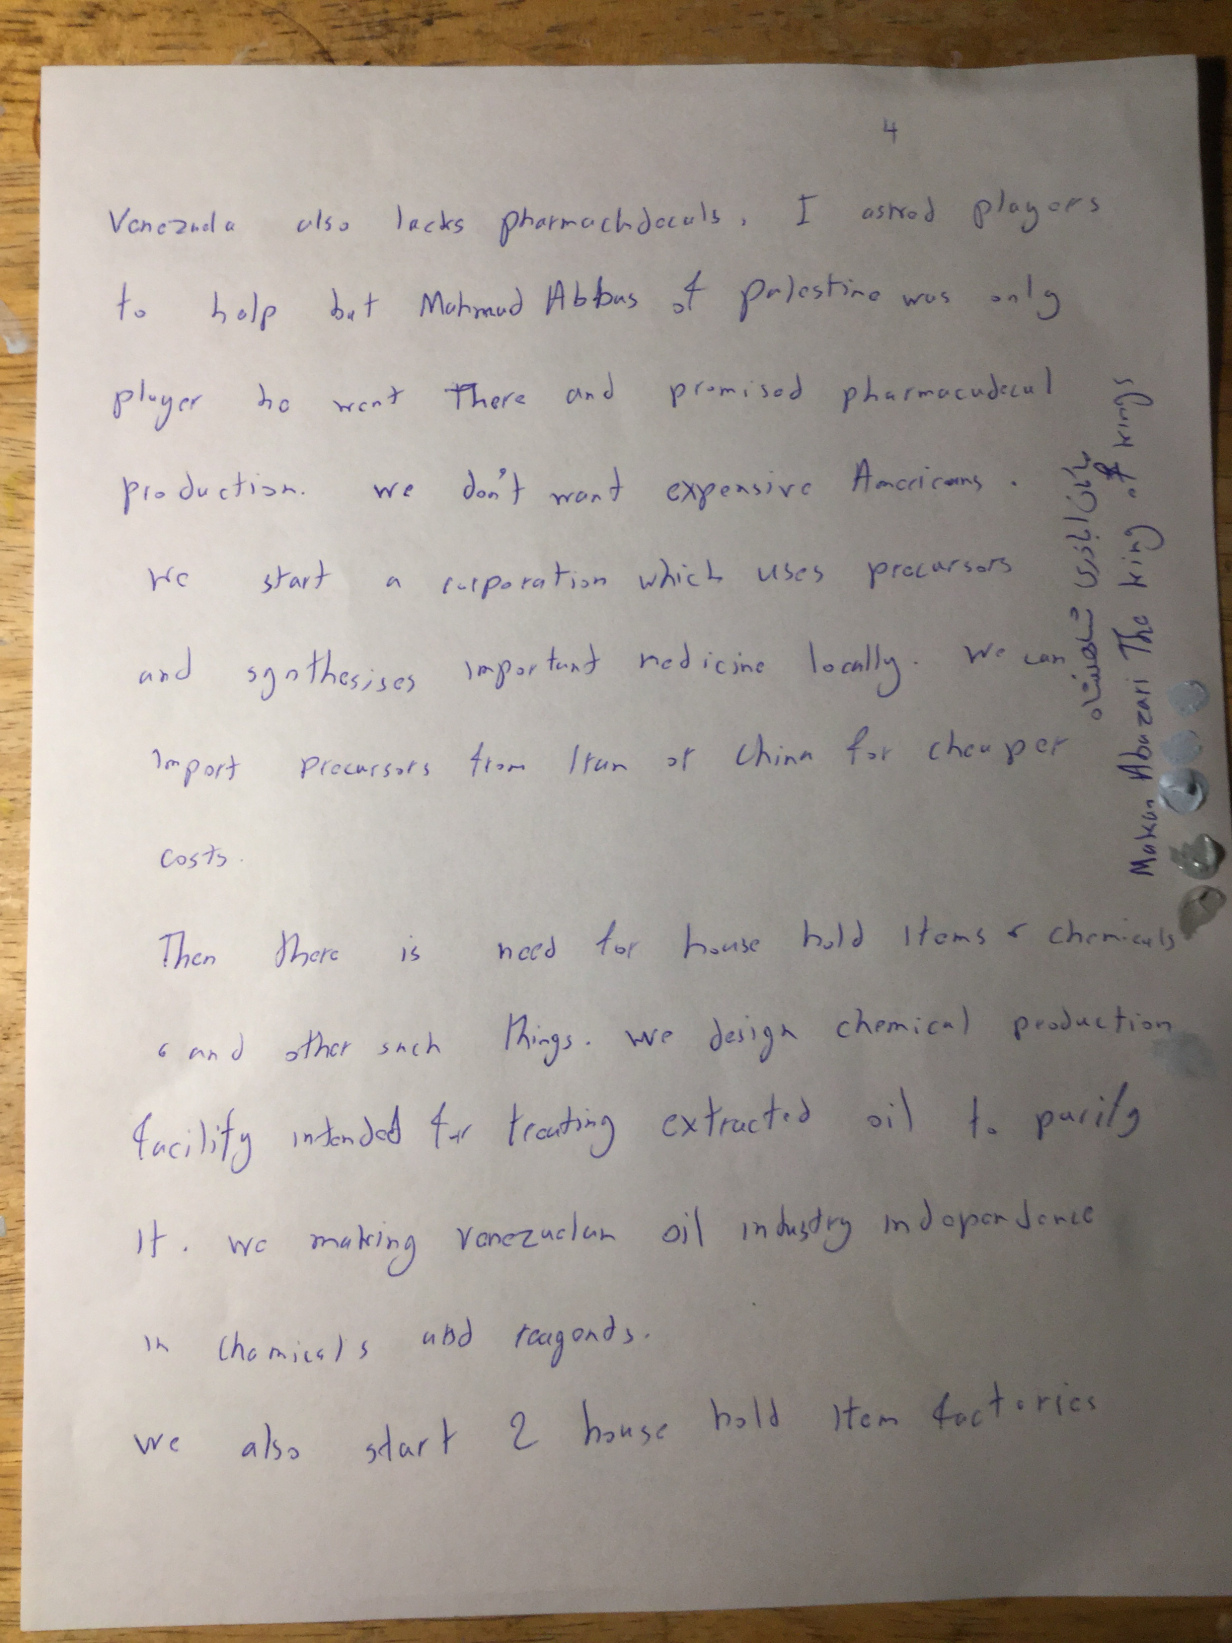 4
Venezuela also lacks pharmachdecals. I asked players
to help but Mahmud Abbas of palestine was only
player he went There and promised pharmacudecal
production. we don't want expensive Americans.
We start a corporation which uses precursors
and synthesises important medicine locally. We can
import precursors from Iran or China for cheaper
costs.
Then there is need for house hold Items & chemicals
and other such things. we design chemical production
facility intended for treating extracted oil to purify
It. we making venezuelan oil industry independence
in chemicals and reagends.
we also start 2 house hold Item factories
ماکان اباذری شاهنشاه
Makan Abazari The king of kings